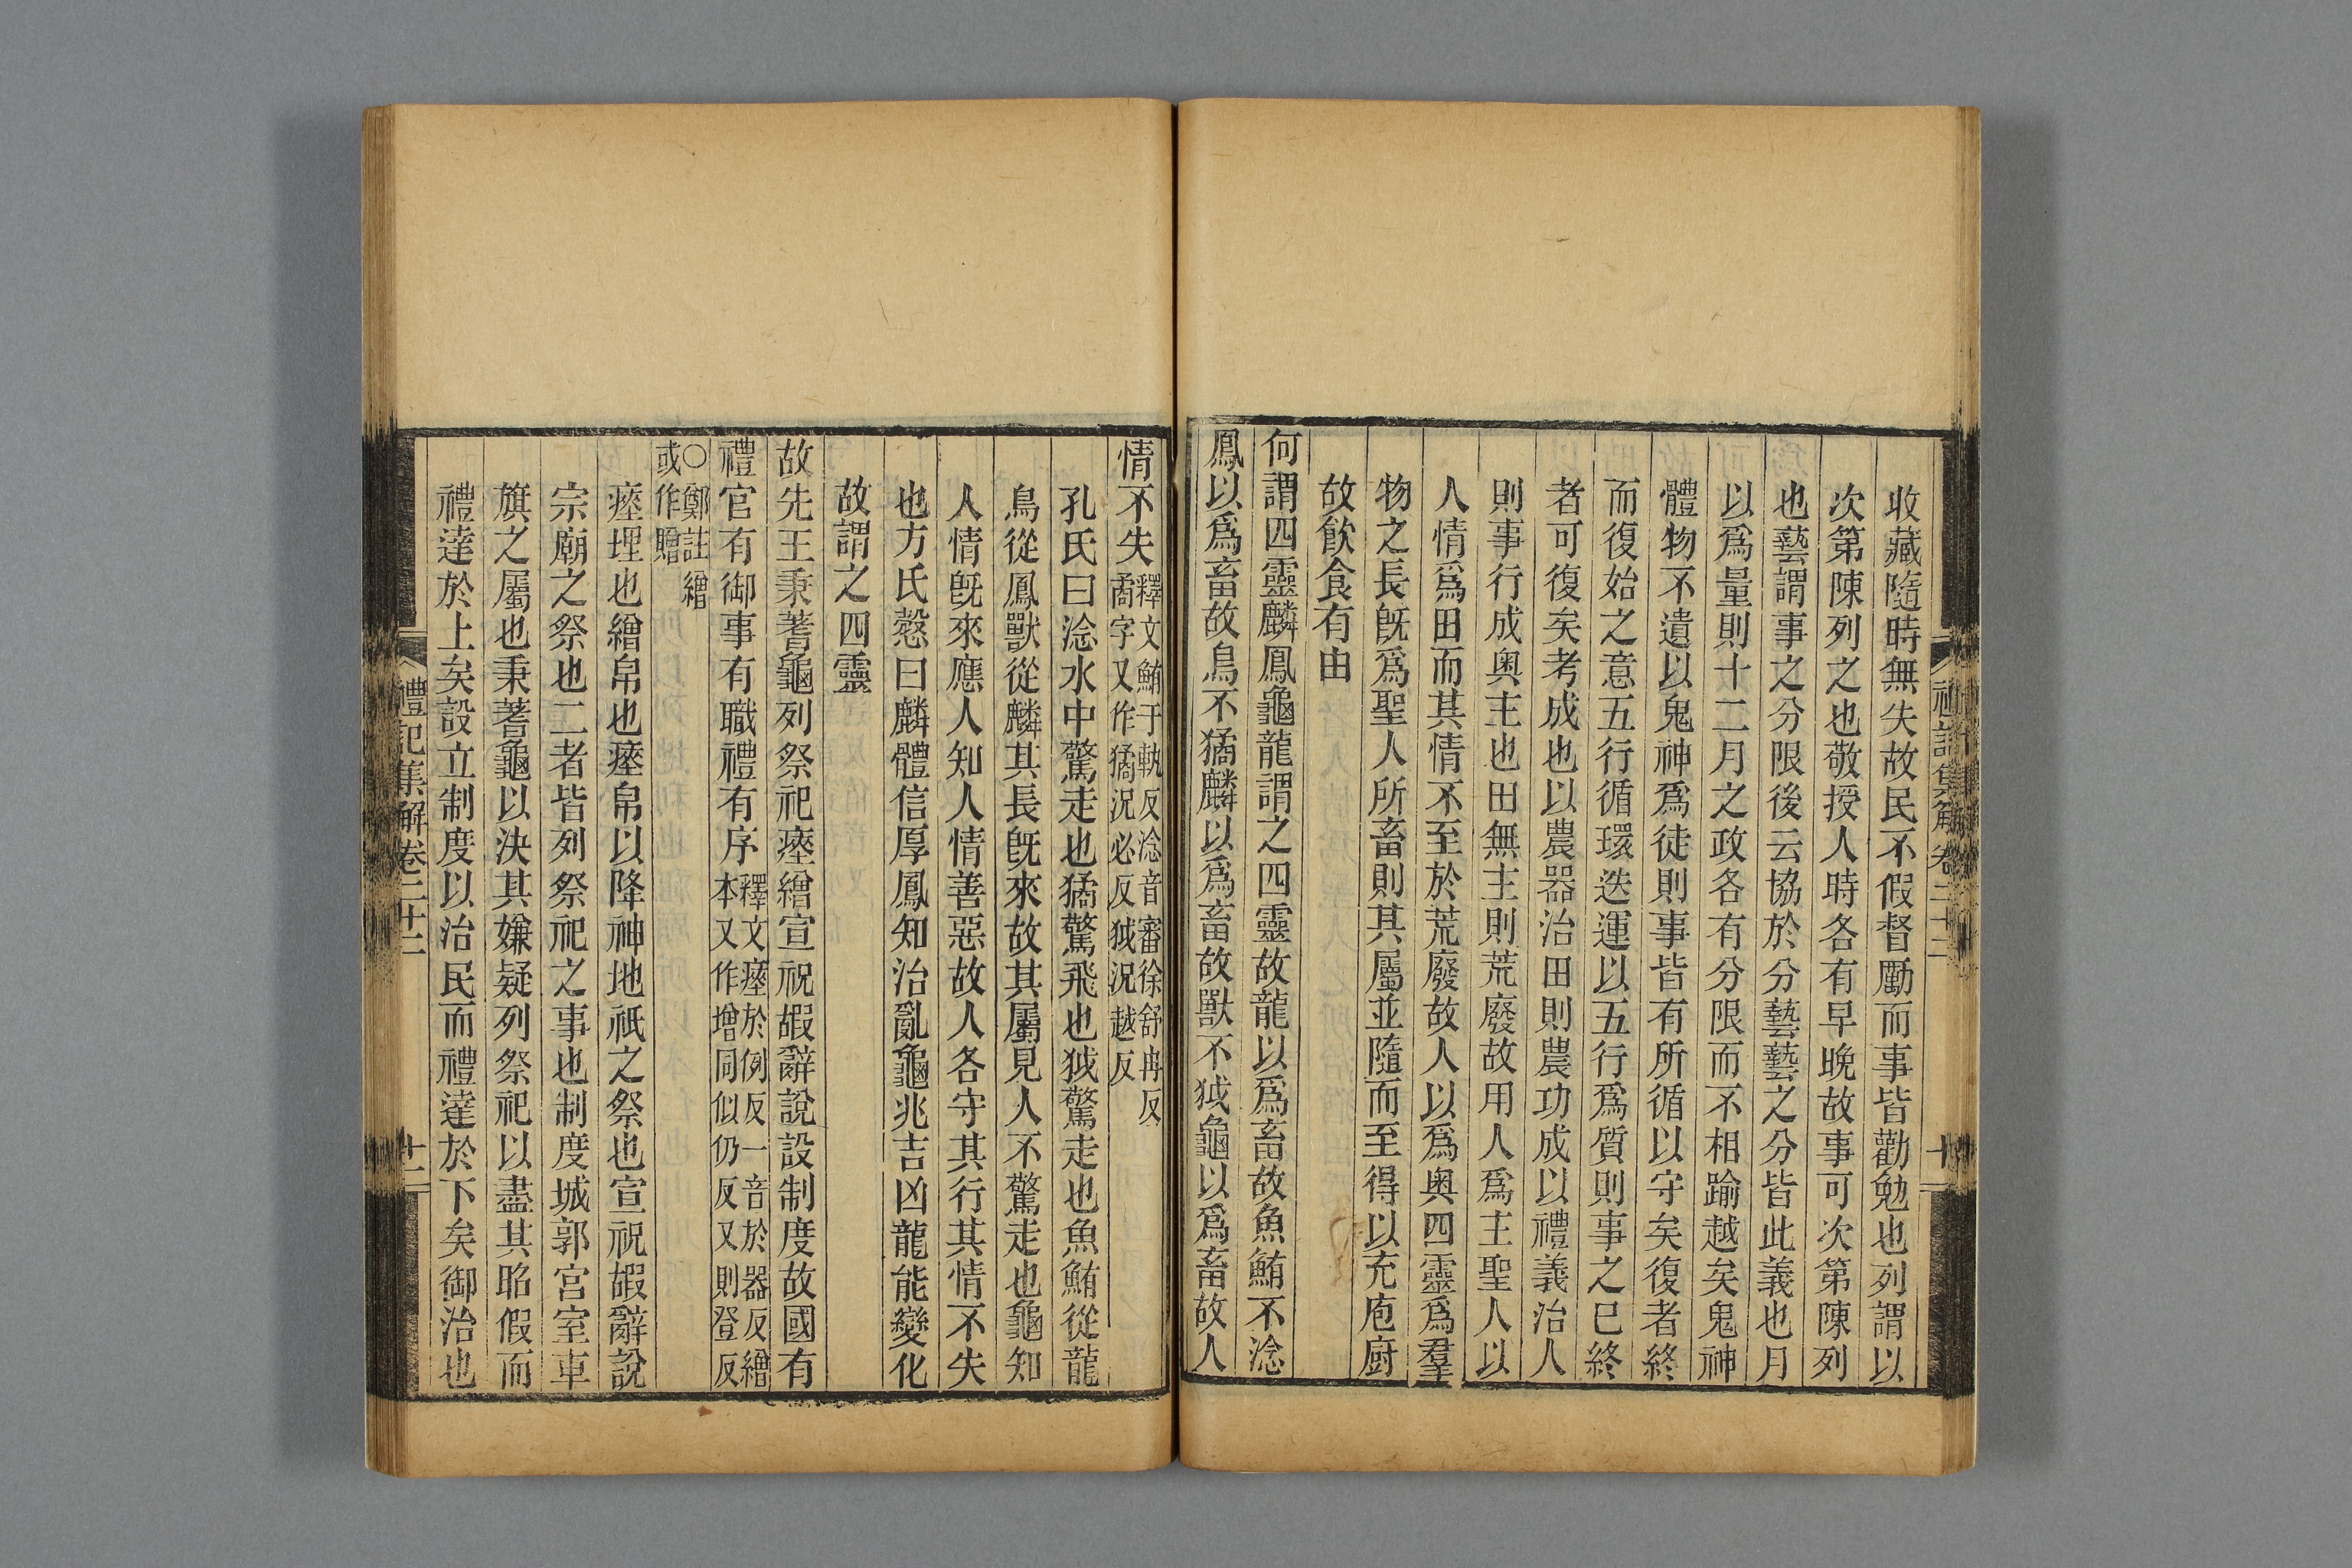 禮記集解 卷二十二 十一
收藏隨時無失故民不假督勵而事皆勸勉也列謂以
次第陳列之也敬授人時各有早晚故事可次第陳列
也藝謂事之分限後云協於分藝藝之分皆此義也月
以爲量則十二月之政各有分限而不相踰越矣鬼神
體物不遺以鬼神爲徒則事皆有所循以守矣復者終
而復始之意五行循環迭運以五行爲質則事之已終
者可復矣考成也以農器治田則農功成以禮義治人
則事行成奥主也田無主則荒廢故用人爲主聖人以
人情爲田而其情不至於荒廢故人以爲奥四靈爲羣
物之長旣爲聖人所畜則其屬並隨而至得以充庖厨
故飲食有由
何謂四靈麟鳳龜龍謂之四靈故龍以爲畜故魚鮪不淰
鳳以爲畜故鳥不獝麟以爲畜故獸不狘龜以爲畜故人
情不失釋文鮪于軌反淰音審徐舒冉反
矞字又作獝況必反狘況越反
孔氏曰淰水中驚走也獝驚飛也狘驚走也魚鮪從龍
鳥從鳳獸從麟其長旣來故其屬見人不驚走也龜知
人情旣來應人知人情善惡故人各守其行其情不失
也方氏慤曰麟體信厚鳳知治亂龜兆吉凶龍能變化
故謂之四靈
故先王秉蓍龜列祭祀瘞繒宣祝嘏辭說設制度故國有
禮官有御事有職禮有序釋文瘞於例反一音於器反繒
本又作增同似仍反又則登反
○鄭註繒
或作贈
瘞埋也繒帛也瘞帛以降神地祇之祭也宣祝嘏辭說
宗廟之祭也二者皆列祭祀之事也制度城郭宫室車
旗之屬也秉蓍龜以決其嫌疑列祭祀以盡其昭假而
禮達於上矣設立制度以治民而禮達於下矣御治也
禮記集解 卷二十二 十二